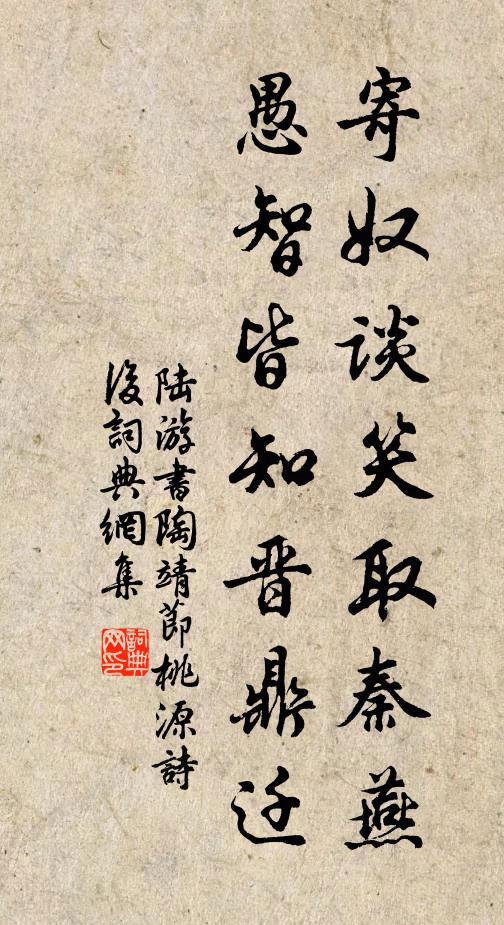 寄奴谈笑取秦燕
愚智皆知晋鼎迁
陆游書陶靖節桃源詩
後詞典網集
詞典网印